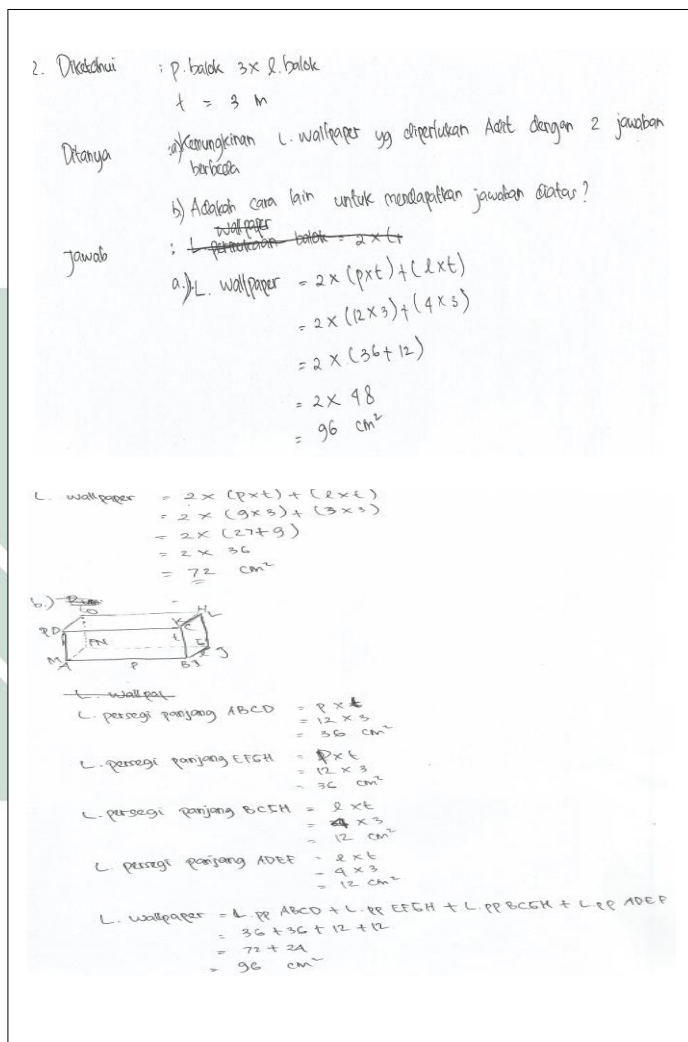 2. Diketahui : p. balok 3x l. balok
t = 3 m
Ditanya : a) Kemungkinan L. wallpaper yg diperlukan Adit dengan 2 jawaban
berbeda
b) Adakah cara lain untuk mendapatkan jawaban diatas?
wallpaper
Jawab : L permukaan balok = 2 x (
a.) L. wallpaper = 2 x (pxt) + (lxt)
= 2 x (12x3) + (4x3)
= 2 x (36+12)
= 2 x 48
= 96 cm²
L. wallpaper = 2 x (pxt) + (lxt)
= 2 x (9x3) + (3x3)
= 2 x (27+9)
= 2 x 36
= 72 cm²
b.)
L. wallpa
L. persegi panjang ABCD = p x t
= 12 x 3
= 36 cm²
L. persegi panjang EFGH = p x t
= 12 x 3
= 36 cm²
L. persegi panjang BCGH = l x t
= 4 x 3
= 12 cm²
L. persegi panjang ADEF = l x t
= 4 x 3
= 12 cm²
L. wallpaper = L. pp ABCD + L. pp EFGH + L. pp BCGH + L. pp ADEF
= 36 + 36 + 12 + 12
= 72 + 24
= 96 cm²